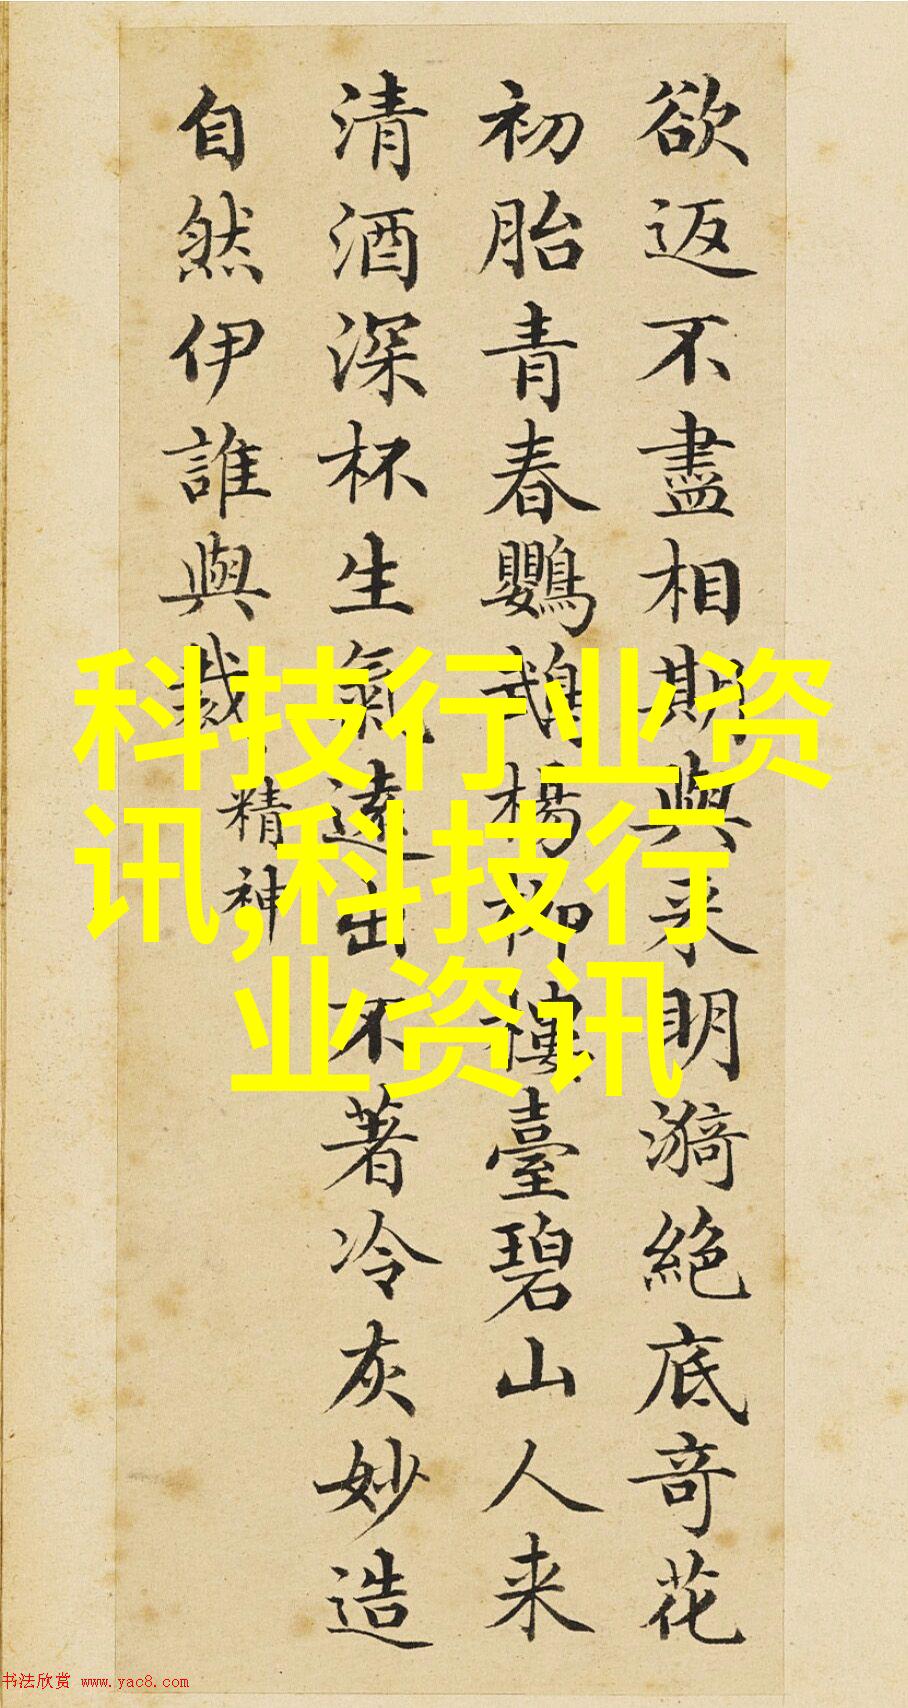 欲返不盡相期與来明漪絕底奇花
初胎青春鸚鵡楊柳樓臺碧山人来
清酒深杯生氣遠出不著冷灰妙造
自然伊誰與裁
精神
科技行业资
讯,科技行
业资讯
书法欣赏 www.yac8.com